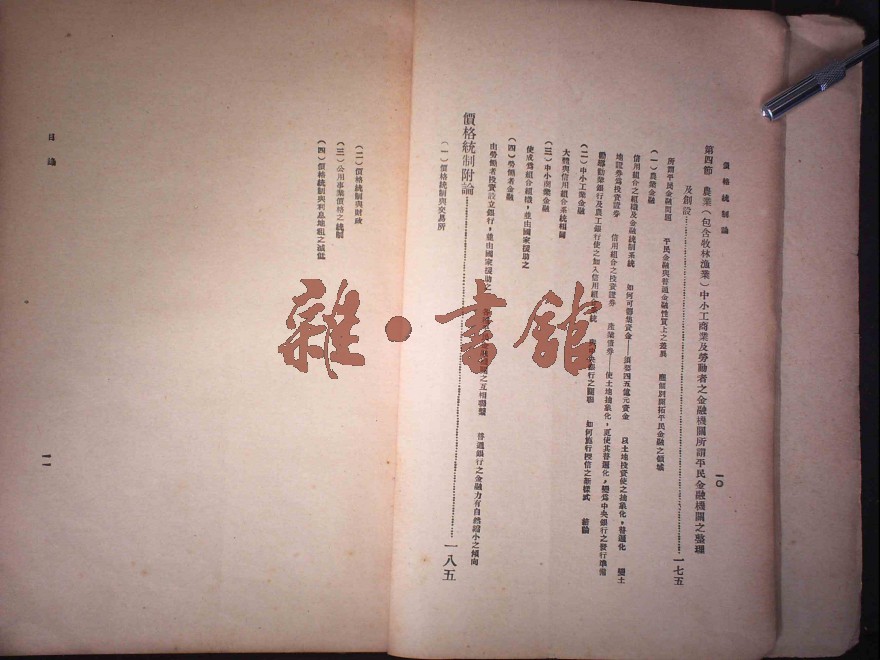 價格統制論
一〇
第四節 農業(包含牧林漁業)中小工商業及勞動者之金融機關所謂平民金融機關之整理
及創設……一七五
所謂平民金融問題 平民金融與普通金融性質上之差異 應個別開拓平民金融之領域
(一)農業金融
信用組合之組織及金融統制系統 如何可籌集資金——須要四五億元資金 以土地投資使之抽象化,普遍化 變土
地證券為投資證券 信用組合之投資證券 產業債券——使土地抽象化,更使其普遍化,變為中央銀行之發行準備
勸導勸業銀行及農工銀行使之加入信用組合系統 與中央銀行之關聯 如何施行授信之新樣式 結論
(二)中小工業金融
大體與信用組合系統相關
(三)中小商業金融
使成為組合組織,並由國家援助之
(四)勞働者金融
由勞働者投資設立銀行,並由國家援助之 之互相聯繫 普通銀行之金融力有自然縮小之傾向
價格統制附論……一八五
(一)價格統制與交易所
(二)價格統制與財政
(三)公用事業價格之統制
(四)價格統制與利息地租之減低
目論
一一
雜·書館